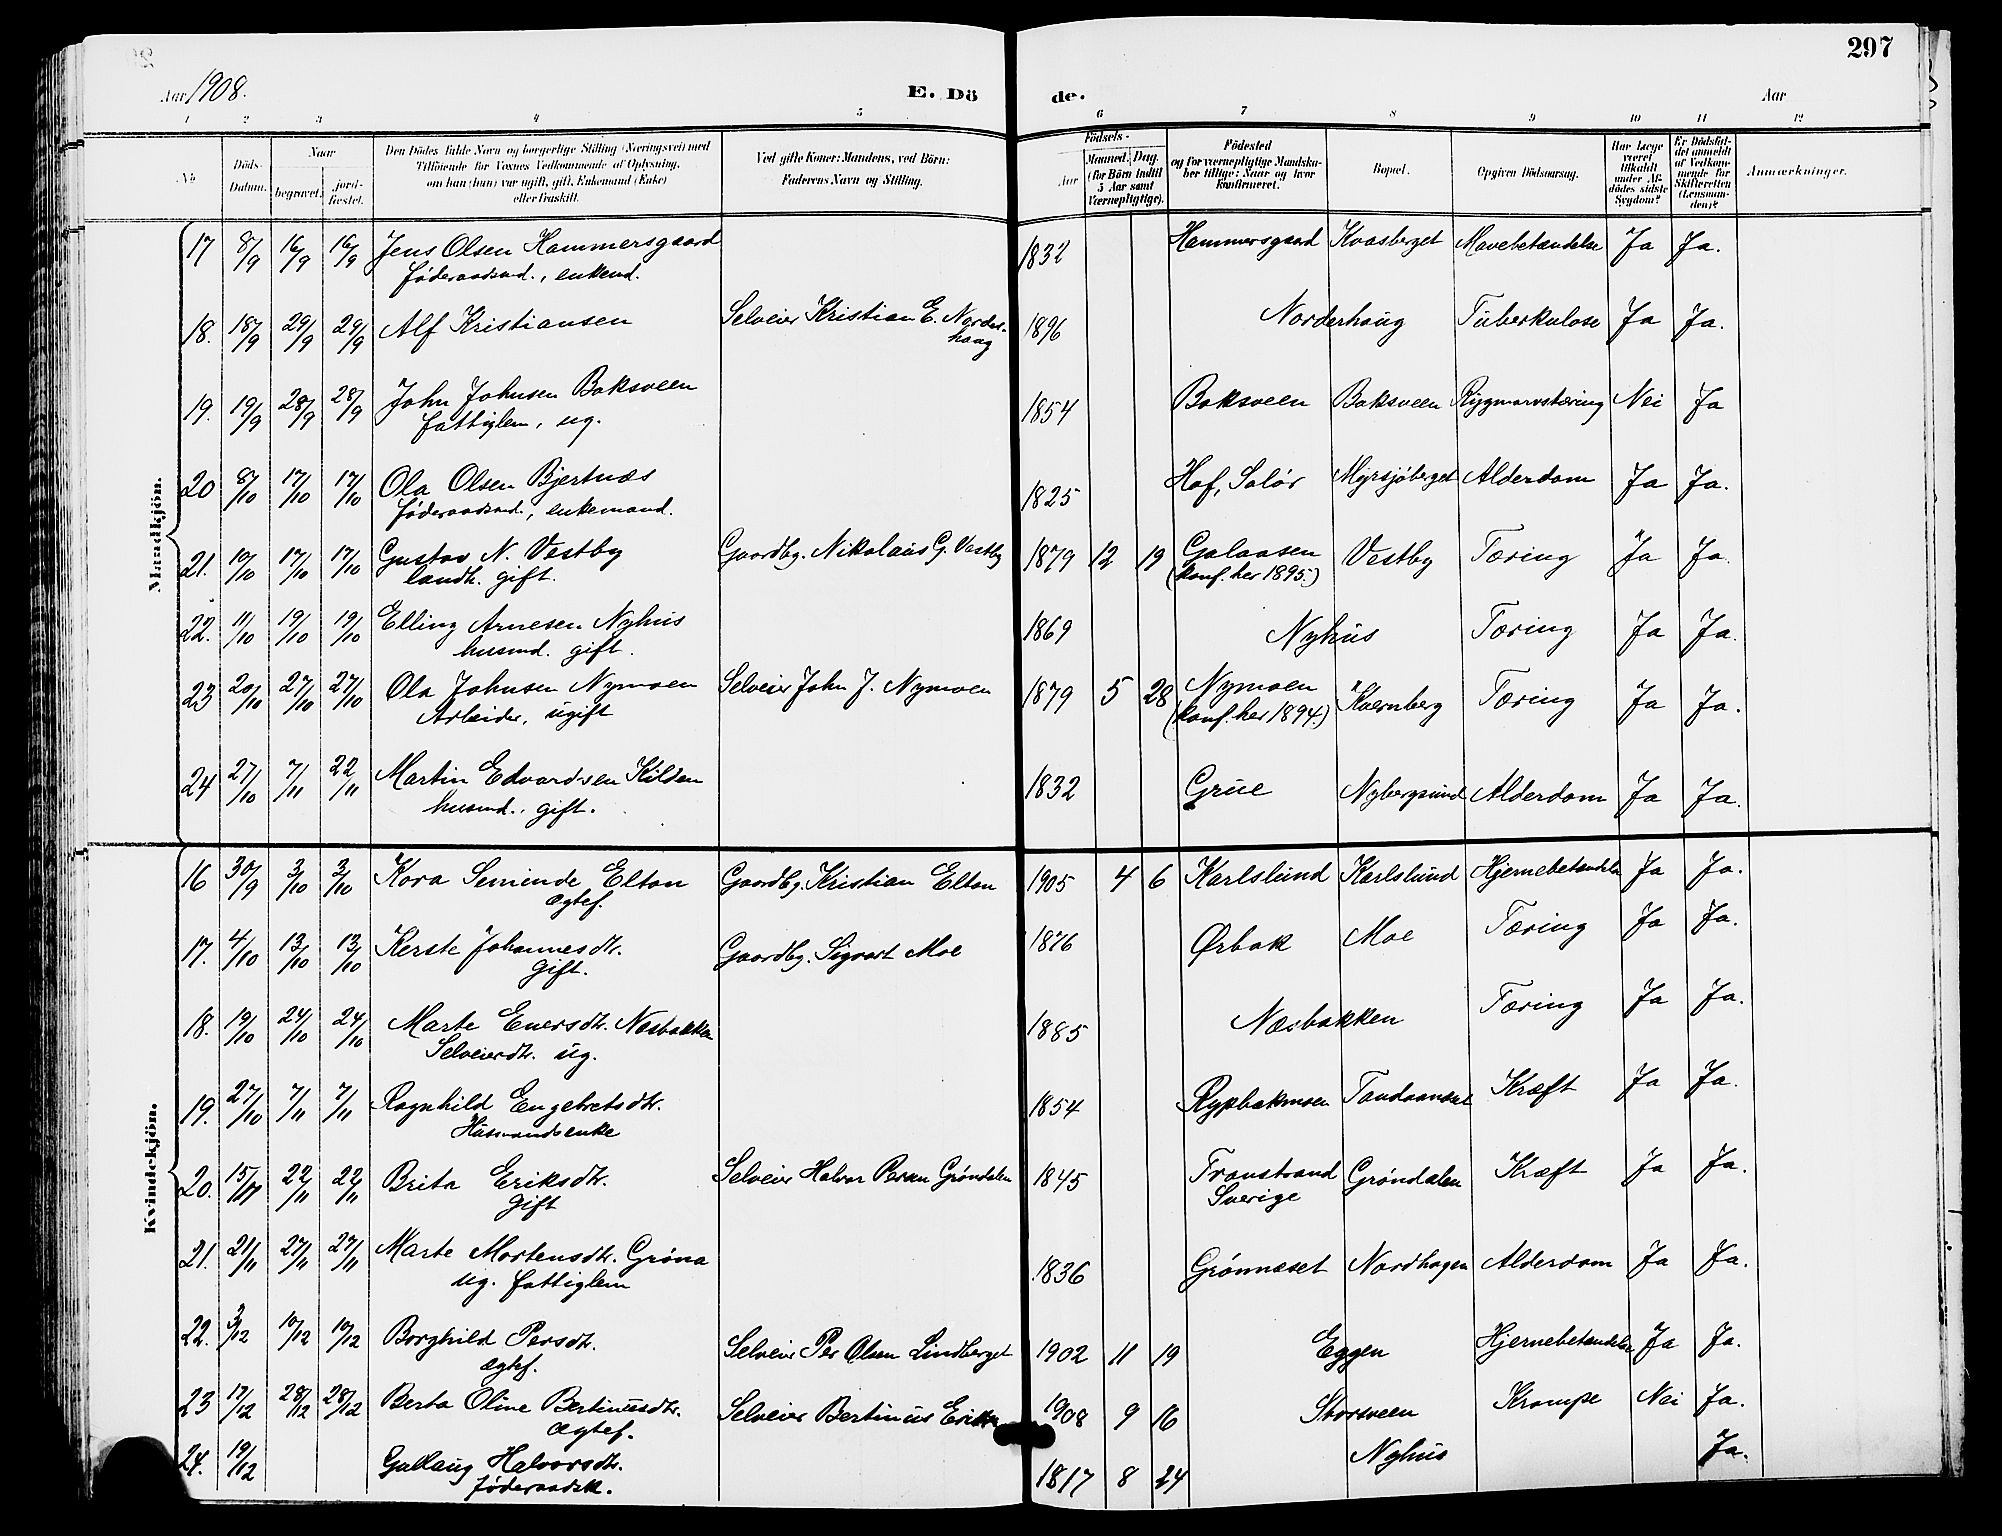 297
Aar 1908.
E. Dö de.
Aar
1 2 3 4 5 6 7 8 9 10 11 12
No
Döds-Datum.
Naar
begravet.
jord-fæstet.
Den Dödes fulde Navn og borgerlige Stilling (Næringsvei) med
Tilföiende for Voxnes Vedkommende af Oplysning,
om han (hun) var ugift, gift, Enkemand (Enke)
eller fraskilt.
Ved gifte Koner: Mandens, ved Börn:
Faderens Navn og Stilling.
Födsels-
Aar
Maaned. Dag.
(for Börn indtil
5 Aar samt
Værnepligtige).
Födested
og for værnepligtige Mandska-
ber tillige: Naar og hvor
konfirmeret.
Bopæl.
Opgiven Dödsaarsag.
Har Læge
været
tilkaldt
under Af-
dödes sidste
Sygdom?
Er Dödsfal-
det anmeldt
af Vedkom-
mende for
Skifteretten
(Lensman-
den)?
Anmærkninger.
Mandkjön.
17 8/9 16/9 16/9 Jens Olsen Hammersgaard 1832 Hammersgaard Kvasberget Mavebetændelse Ja Ja.
föderaadsmd., enkemd.
18. 18/9 29/9 29/9 Alf Kristiansen Selveier Kristian E. Norder- 1896 Norderhaug Tuberkulose Ja Ja.
haag
19. 19/9 28/9 28/9 John Johnsen Baksveen 1854 Baksveen Baksveen Rygmarvstæring Nei Ja
fattiglem, ug.
20 8/10 17/10 17/10 Ola Olsen Bjertnæs 1825 Hof, Solör Myrsjöberget Alderdom Ja Ja.
föderaadsmd., enkemand.
21. 10/10 17/10 17/10 Gustav N. Vestby Gaardbg. Nikolaus G. Vestby 1879 12 19 Galaasen Vestby Tæring Ja Ja.
landh. gift. (konf. her 1895.)
22. 11/10 19/10 19/10 Elling Arnesen Nyhus 1869 Nyhus Tæring Ja Ja.
husmd. gift.
23 20/10 27/10 27/10 Ola Johnsen Nymoen Selveier John J. Nymoen 1879 5 28 Nymoen Kvernberg Tæring Ja Ja.
Arbeider, ugift (konf. her 1894.)
24 27/10 7/11 22/11 Martin Edvardsen Kilden 1832 Grue Nybergsund Alderdom Ja Ja.
husmd., gift.
Kvindekjön.
16 30/9 3/10 3/10 Kora Semine Elton Gaardbg. Kristian Elton 1905 4 6 Karlslund Karlslund Hjernebetændelse Ja Ja.
ægtef.
17. 4/10 13/10 13/10 Kerste Johannesdtr. Gaardbg. Sigvart Moe 1876 Ørbak Moe Tæring Ja Ja.
gift.
18. 19/10 24/10 24/10 Marte Enersdtr. Næsbakken 1885 Næsbakken Tæring Ja Ja.
Selveierdtr. ug.
19. 27/10 7/11 7/11 Ragnhild Engebretsdtr. 1854 Rypbakmoen Tandaanset Kræft Ja Ja.
Husmandsenke
20. 15/11 22/11 22/11 Brita Eriksdtr. Selveier Halvor Persen Grøndalen 1845 Transtrand Grøndalen Kræft Ja Ja.
gift Sverige
21. 21/11 27/11 27/11 Marte Mortensdtr. Grøna 1836 Grønneset Nordhagen Alderdom Ja Ja.
ug. fattiglem
22. 3/12 10/12 10/12 Borghild Persdtr. Selveier Per Olsen Lindberget 1902 11 19 Eggen Hjernebetændelse Ja Ja.
ægtef.
23 17/12 28/12 28/12 Berta Oline Bertinusdtr. Selveier Bertinus Eriksen 1908 9 16 Storsveen Krampe Nei Ja.
ægtef.
24. 19/12 Gullaug Halvorsdtr. 1817 8 24 Nyhus Ja.
föderaadsk.